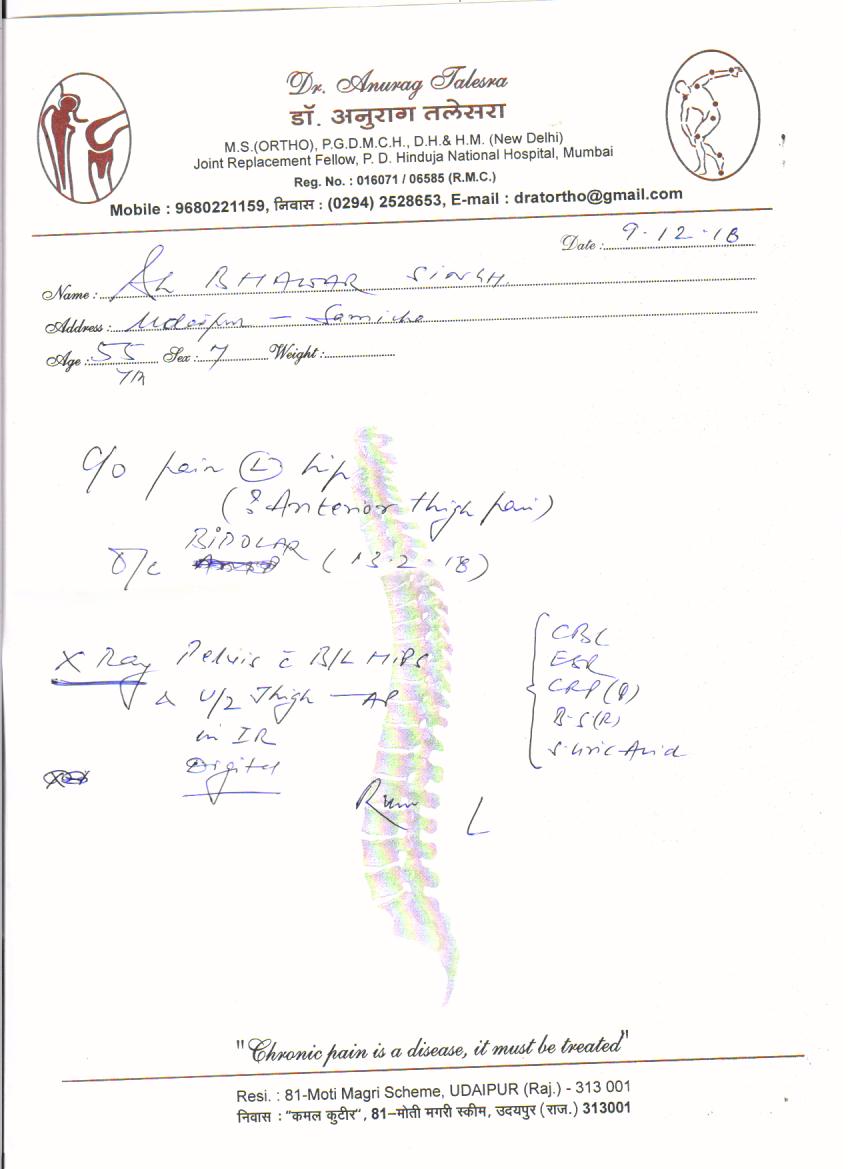 Dr. Anurag Talesra
डॉ. अनुराग तलेसरा
M.S.(ORTHO), P.G.D.M.C.H., D.H.& H.M. (New Delhi)
Joint Replacement Fellow, P. D. Hinduja National Hospital, Mumbai
Reg. No. : 016071 / 06585 (R.M.C.)
Mobile : 9680221159, निवास : (0294) 2528653, E-mail : dratortho@gmail.com
Date : 9-12-18
Name : BHAWAR SINGH
Address : Udaipur -
Age : 55 Sex : Weight :
c/o pain (L) hip
(? Anterior thigh pain)
BIPOLAR (13-2-18)
X Ray Pelvis c̄ B/L HIPS
CBC
ESR
& U/2 Thigh - AP
CRP (Q)
in IR
B-S (R)
Digital
S. Uric Acid
L
"Chronic pain is a disease, it must be treated"
Resi. : 81-Moti Magri Scheme, UDAIPUR (Raj.) - 313 001
निवास : "कमल कुटीर", 81–मोती मगरी स्कीम, उदयपुर (राज.) 313001